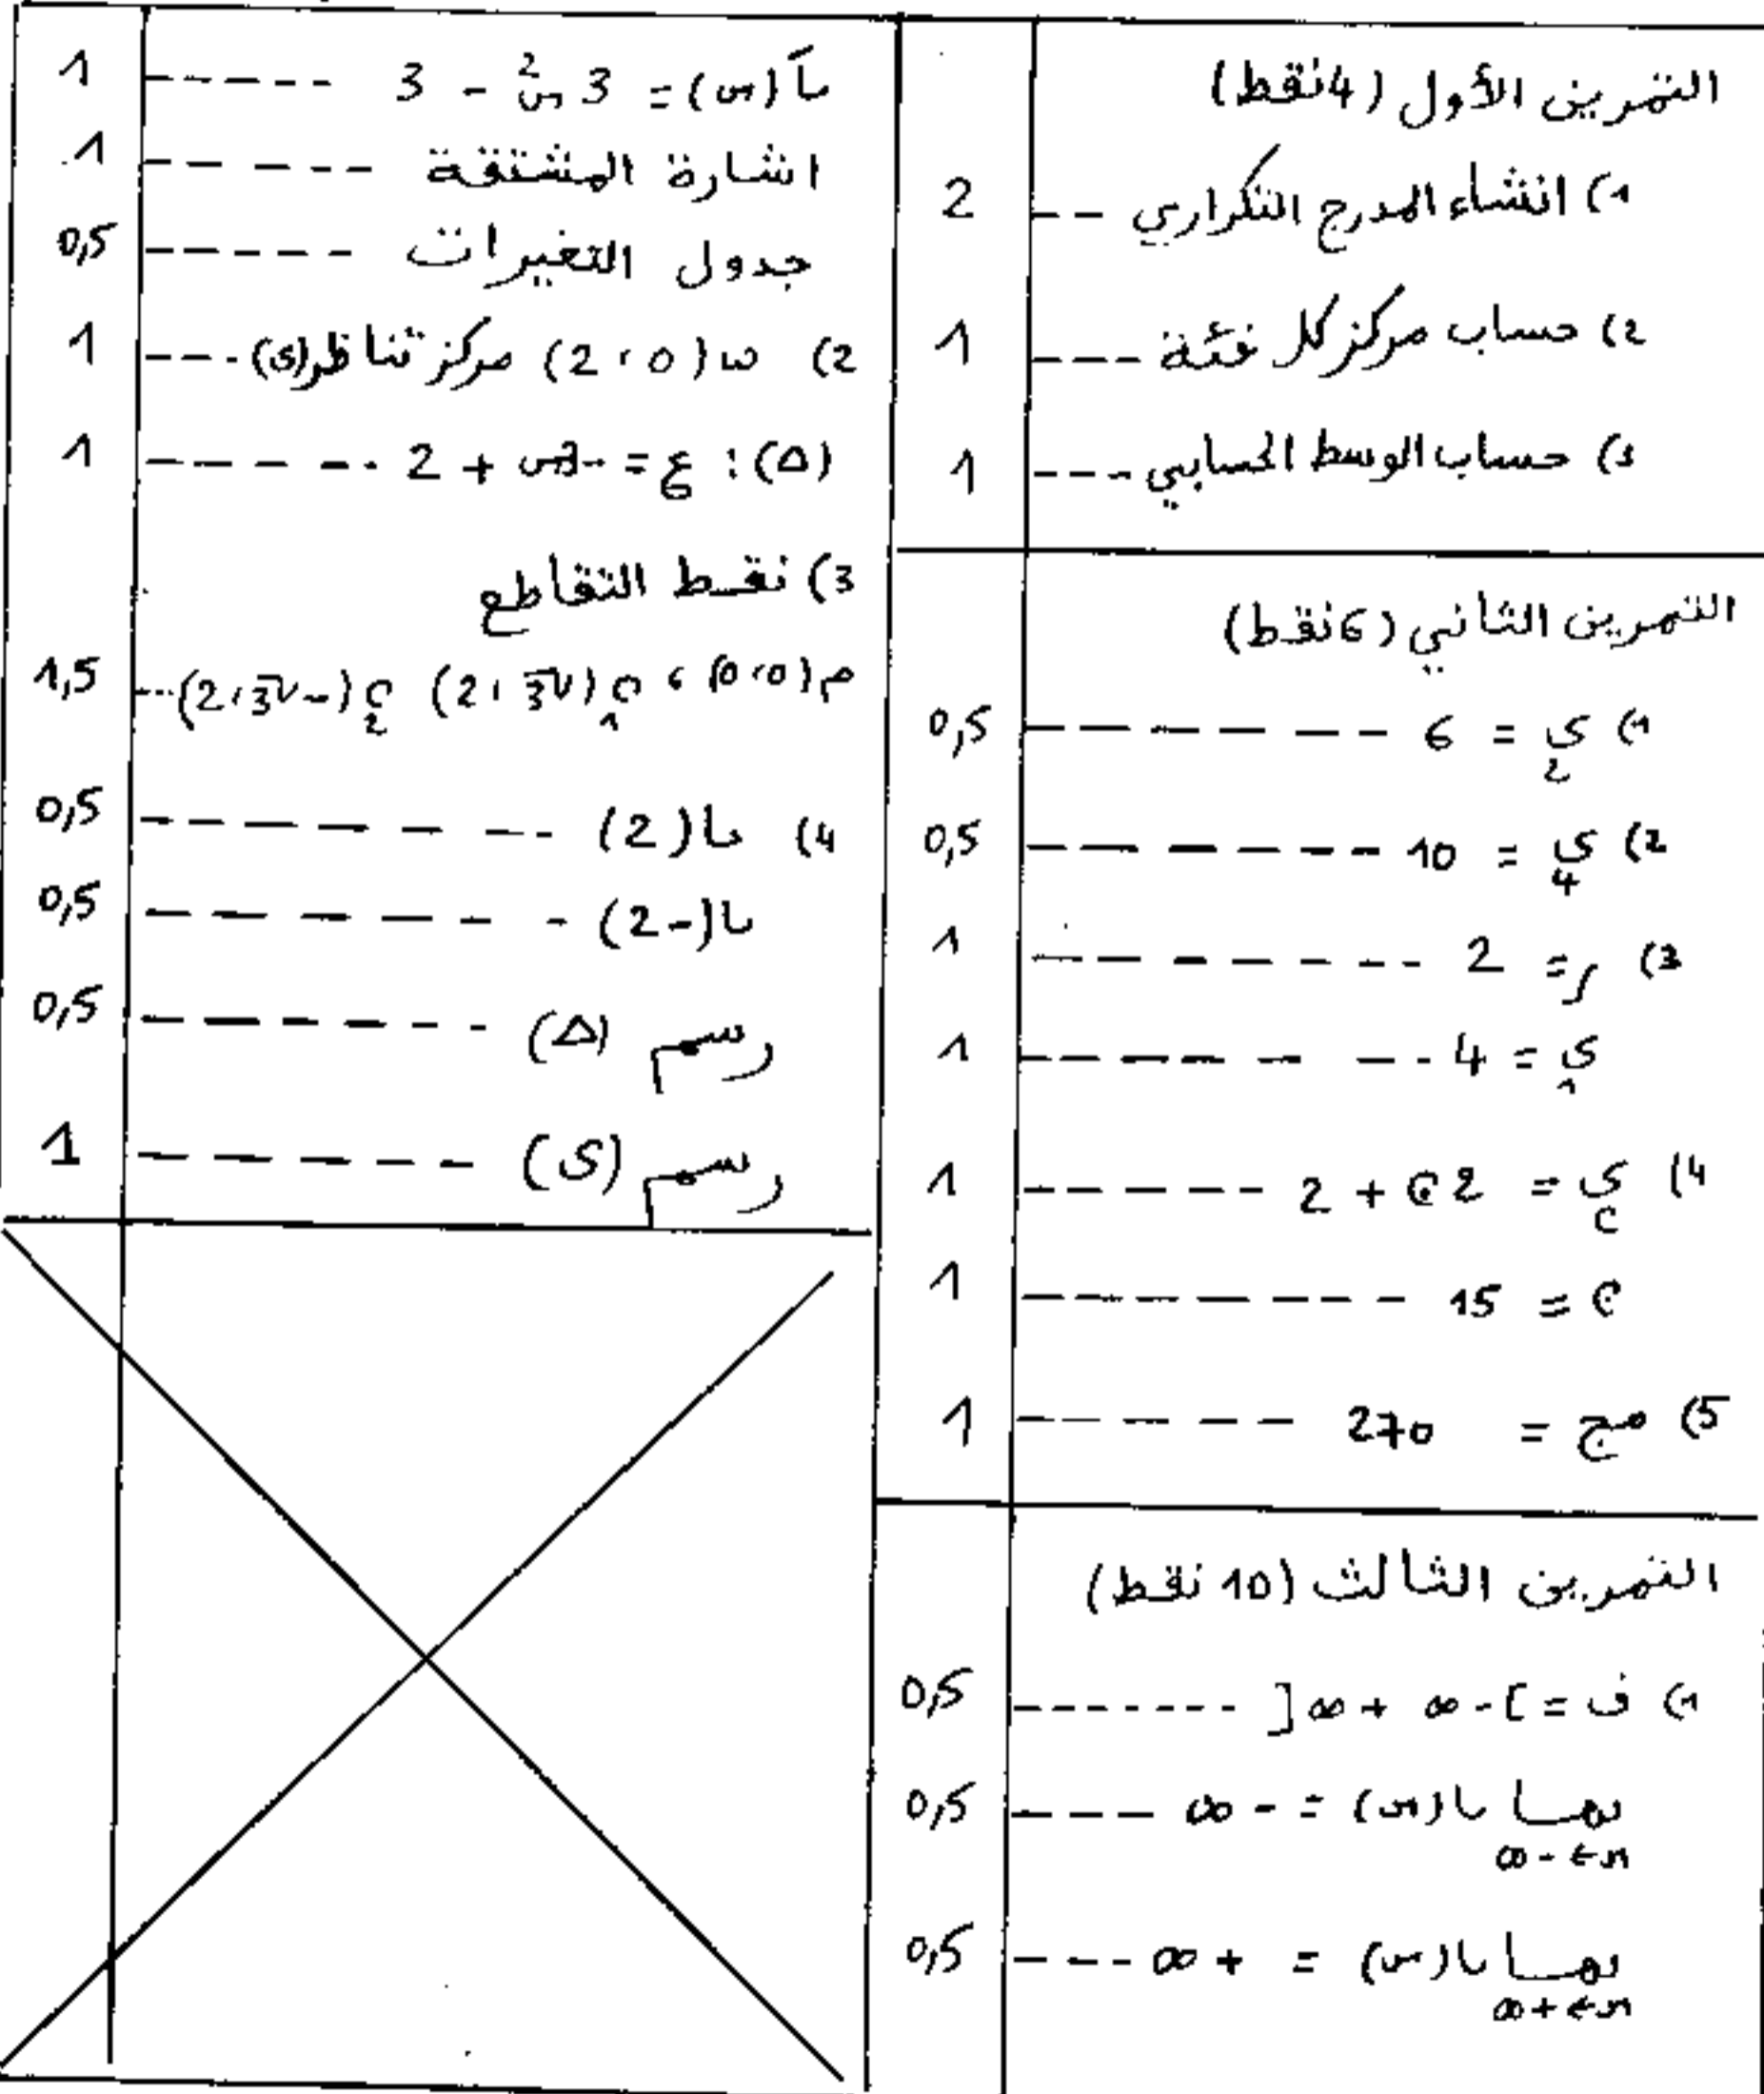 التمرين الأول (4 نقط)
1) انشاء المدرج التكراري -- 2
2) حساب مركز كل فئة --- 1
3) حساب الوسط الحسابي --- 1
التمرين الثاني (6 نقط)
1) ي2 = 6 ------ 0,5
2) ي4 = 10 ------ 0,5
3) ر = 2 ------ 1
ي1 = 4 ------ 1
4) ين = 2ن + 2 ------ 1
ن = 15 ------ 1
5) مج = 270 ------ 1
التمرين الثالث (10 نقط)
1) ف = ]-∞ +∞[ ------ 0,5
نهــا تا(س) = -∞ --- 0,5
س→-∞
نهــا تا(س) = +∞ --- 0,5
س→+∞
تاَ(س) = 3س² - 3 ------ 1
اشارة المشتقة ------ 1
جدول التغيرات ------ 0,5
2) س(0، 2) مركز تناظر(ي) --- 1
(Δ): ع = -3س + 2 ------ 1
3) نقط التقاطع
م(0،0)، ن1(√3، 2) ن2(-√3، 2) --- 1,5
4) تا(2) ------ 0,5
تا(-2) ------ 0,5
رسم (Δ) ------ 0,5
رسم (ي) ------ 1